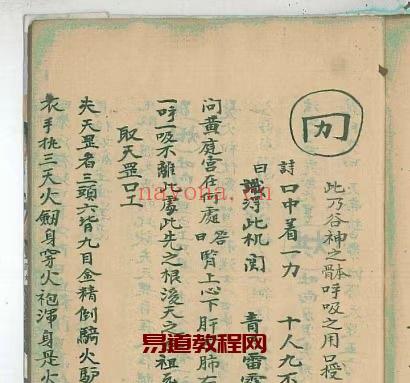 此乃谷神之骵呼吸之用口授
囗力
詩 口中着一力 十人九不
曰 識得此机関 青雷
問黄庭宫在何處 答曰 腎上心下肝肺右
一呼一吸不離此處此先之根後天之祖
取天罡口工
夫天罡者三頭六臂九目金精倒騎火驴
衣手执三天火劍身穿火袍渾身是火
nayona.cn
易道教程网